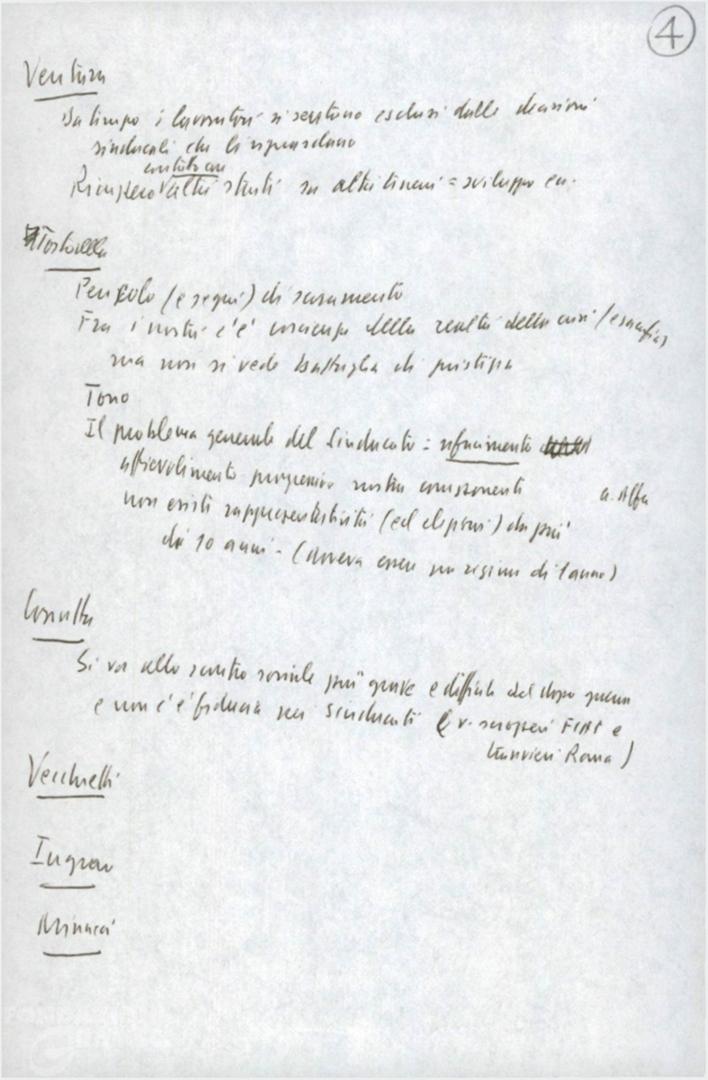 4
Ventura
Da tempo i lavoratori si sentono esclusi dalle decisioni
sindacali che li riguardano
Recupero altri su altri = sviluppo
Tortorella
Pericolo (e segni) di
Fra i nostri c'è coscienza della realtà della crisi
ma non si vede battaglia di giustizia
Tono
Il problema generale del Sindacato :
affievolimento progressivo nostra componente
a. Alfa
non esiste rappresentatività (ed elezioni) da più
di 10 anni - (doveva essere un regime di 1 anno)
Cossutta
Si va allo scontro sociale più grave e difficile del dopo guerra
e non c'è fiducia nei Sindacati (v. scioperi FIAT e
tranvieri Roma)
Vecchietti
Ingrao
Minucci